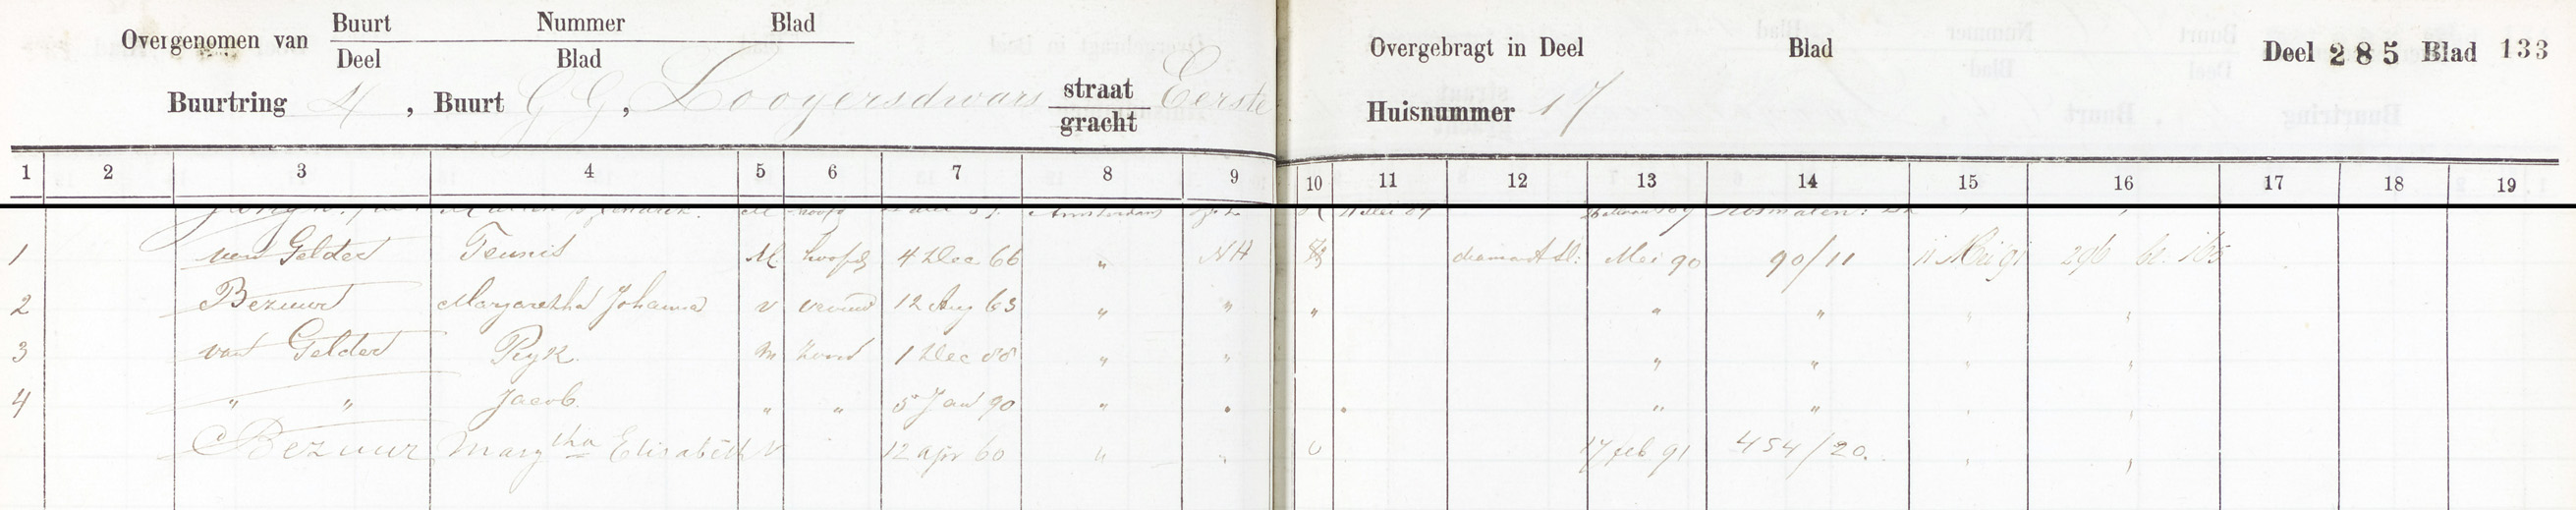 Overgenomen van Buurt Nummer Blad
Deel Blad
Buurtring 4, Buurt GG, Looyersdwars straat gracht Eerste
Overgebragt in Deel Blad Deel 285 Blad 133
Huisnummer 17
1 2 3 4 5 6 7 8 9 10 11 12 13 14 15 16 17 18 19
Amsterdam
1 van Gelder Teunis M hoofd 4 Dec 66 " NH Mei 90 90/11 11 Mei 91 296 bl. 165
2 Bezuur Margaretha Johanna V vrouw 12 Aug 63 " " " " " " "
3 van Gelder Ryk M 1 Dec 88 " " " " " "
4 " " Jacob " " 5 Jan 90 " " " " " "
Bezuur Margtha Elisabeth V 12 apr 60 " " O 17 feb 91 454/20. " "